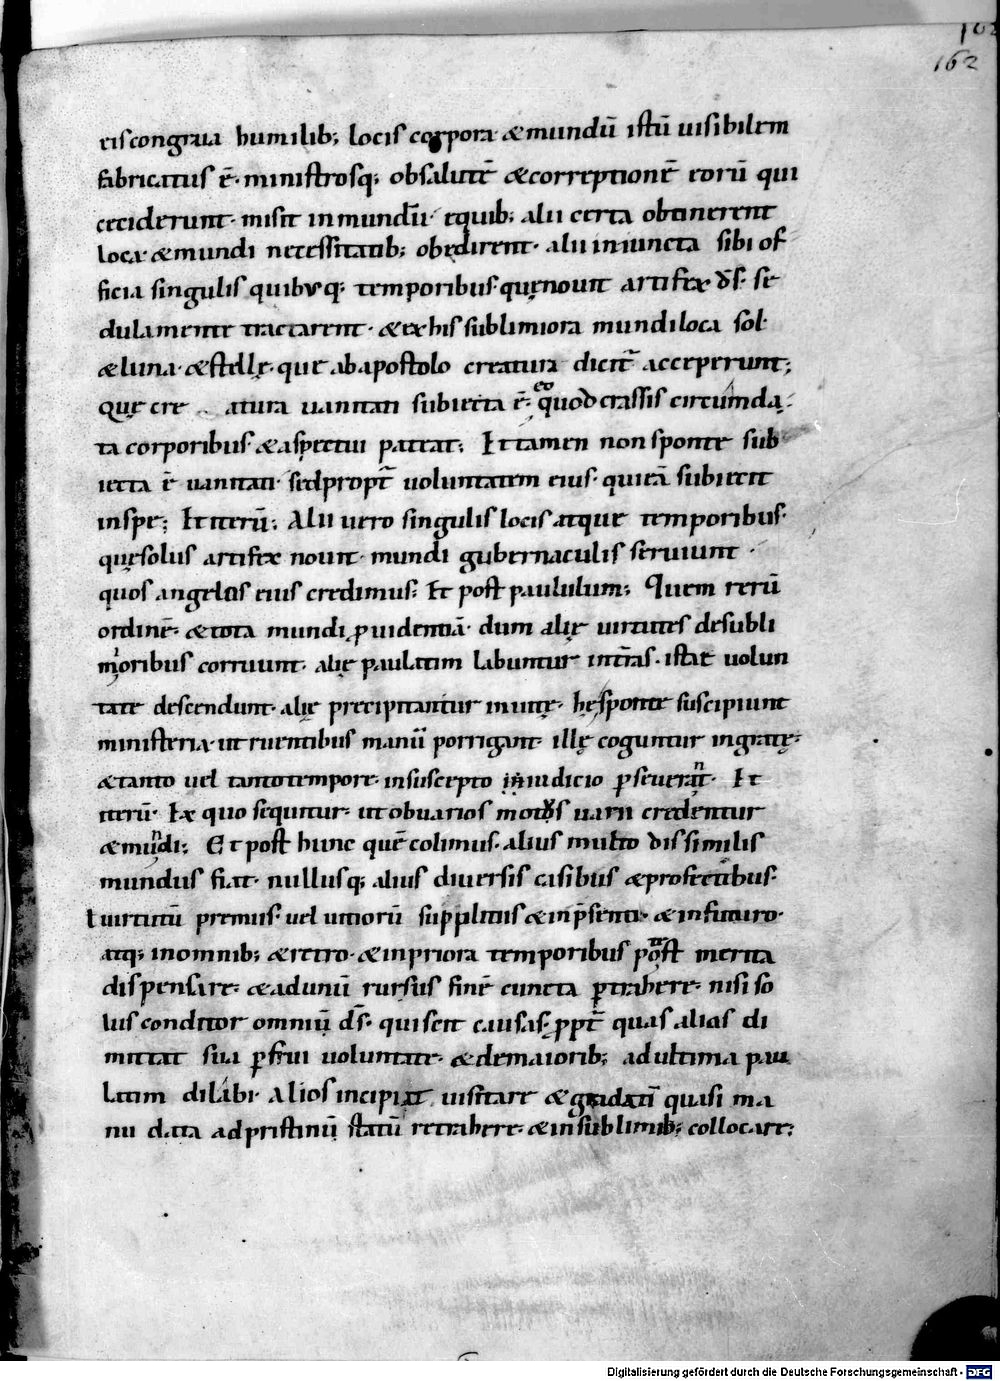 162
162
riscongrua humilib; locis corpora &mundū istū uisibilem
fabricatus ē· ministrosq; obsalutē &correptionē eorū qui
ceciderunt· misit inmundū· equib; alii certa obtinerent
loca· &mundi necessitatib; obedirent· alii iniuncta sibi of
ficia singulis quibusq; temporibus· quęnouit artifex d̄s· se
dulamente tractarent· &exhis sublimiora mundiloca sol·
&luna· &stellę· que abapostolo creatura dicit̄ acceperunt;
Quę cre atura uanitati subiecta ē· eo quod crassis circumda
ta corporibus· &aspectui pateat; Et tamen non sponte sub
iecta ē uanitati· sedpropt̄ uoluntatem eius· quieā subiecit
inspe; Et iterū; Alii uero singulis locis atque temporibus·
quęsolus artifex nouit· mundi gubernaculis seruiunt·
quos angelos eius credimus; Et post paululum; Quem rerū
ordinē· &tota mundi ꝓuidentiā· dum alię uirtutes desubli
mioribus corruunt· alię paulatim labuntur int̄ras· istae uolun
tate descendunt· alię precipitantur inuitę· hęsponte suscipiunt
ministeria· ut ruentibus manū porrigant· illę coguntur ingratę·
&tanto uel tantotempore· insuscepto iniudicio ꝑseuerant· Et
iterū· Ex quo sequitur· ut obuarios motus uarii credentur
&mundi; Et post hunc quē colimus· alius multo dissimilis
mundus fiat· nullusq; alius diuersis casibus &profectibus·
ł uirtutū premus· uel uitiorū suppliciis &inp̄senti· &infuturo·
atq; inomnib; &retro· &inpriora temporibus post merita
dispensare· &adunū rursus finē cuncta ꝑtrahere· nisi so
lus conditor omniū d̄s· quiscit causas· ꝓpt̄ quas alios di
mittat sua ꝑfrui uoluntate· &demaiorib; adultima pau
latim dilabi· Alios incipiat uisitare &gradati quasi ma
nu data adpristinū statū retrahere· &insublimib; collocare;
Digitalisierung gefördert durch die Deutsche Forschungsgemeinschaft - DFG